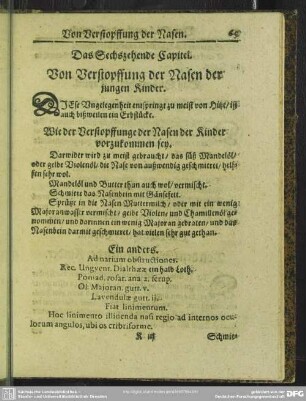 Von Verstopffung der Nasen.
Das Sechszehende Capitel.
Von Verstopffung der Nasen der
jungen Kinder.
DIEse Vngelegenheit entspringt zu meist von Hitze/ ist
auch bißweilen ein Erbstück.
Wie der Verstopffunge der Nasen der Kinder
vorzukommen sey.
Darwider wird zu meist gebraucht/ das süß Mandelöl/
oder gelbe Violenöl/ die Nase von außwendig geschmieret/ helf-
fen sehr wol.
Mandelöl und Butter thun auch wol/ vermischt.
Schmire das Nasenbein mit Gänsefett.
Sprütze in die Nasen Muttermilch/ oder mit ein wenig
Majoranwasser vermischt/ gelbe Violen/ und Chamillenöl ge-
nommen/ und darinnen ein wenig Majoran gebraten/ und das
Nasenbein darmit geschmieret/ hat vielen sehr gut gethan.
Ein anders.
Ad narium obstructiones.
Rec. Ungvent. Dialthææ ein halb Loth.
Pomad. rosar. ana 2. scrup.
Ol. Majoran. gutt. v.
Lavendulæ gutt. ij.
Fiat linimentum.
Hoc linimento illinenda nasi regio ad internos ocu-
lorum angulos, ubi os cribriforme.
K iij
Schmie-